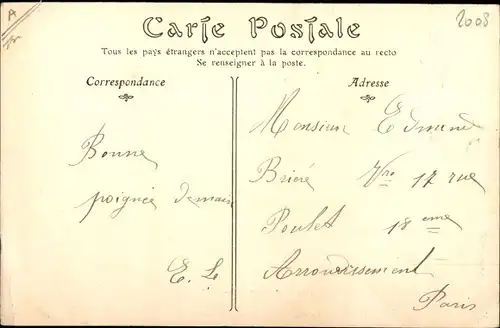 A
2008
Carte Postale
Tous les pays étrangers n'acceptent pas la correspondance au recto
Se renseigner à la poste.
Correspondance
Bonne
poignée demain
E. Le
Adresse
Monsieur Edmund
Brioré 17 rue
Poulet 18 eme
Arrondissement
Paris